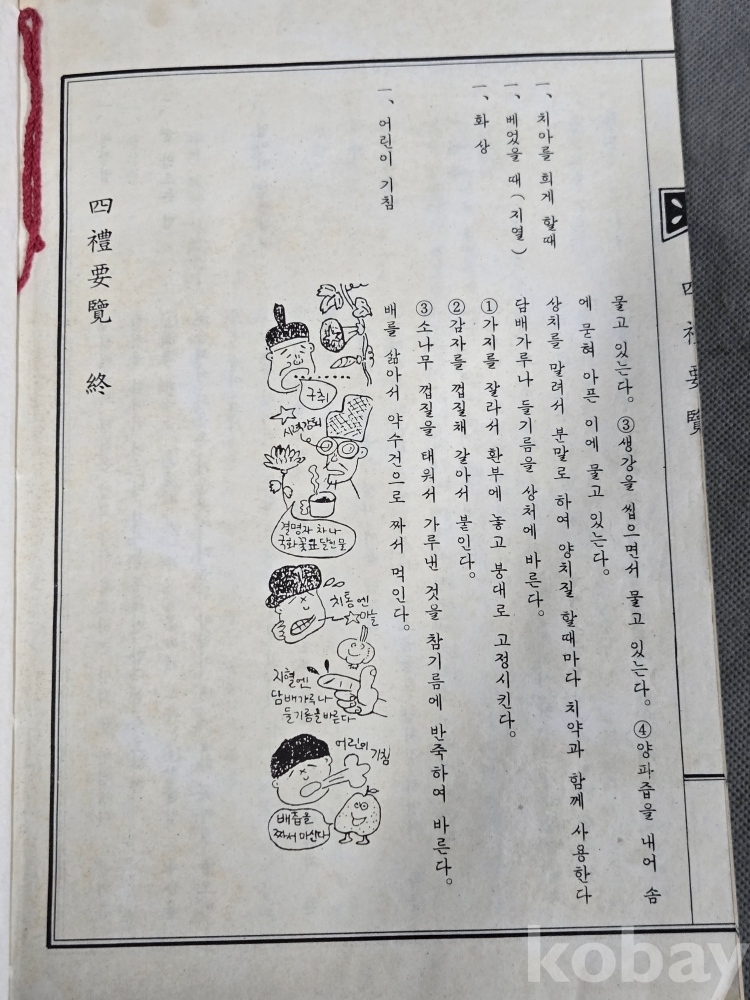 四禮要覽
물고 있는다。③생강을 씹으면서 물고 있는다。④양파즙을 내어 솜
에 묻혀 아픈 이에 물고 있는다。
一、치아를 희게 할때 상치를 말려서 분말로 하여 양치질 할때마다 치약과 함께 사용한다
一、베었을 때(지열) 담배가루나 들기름을 상처에 바른다。
一、화상 ①가지를 잘라서 환부에 놓고 붕대로 고정시킨다。
②감자를 껍질채 갈아서 붙인다。
③소나무 껍질을 태워서 가루낸 것을 참기름에 반죽하여 바른다。
一、어린이 기침 배를 삶아서 약수건으로 짜서 먹인다。
구취
시력감퇴
결명자 차나
국화꽃 달인물
치통엔
마늘
지혈엔
담배가루나
들기름을바른다
어린이 기침
배즙을
짜서 마신다
四禮要覽 終
kobay